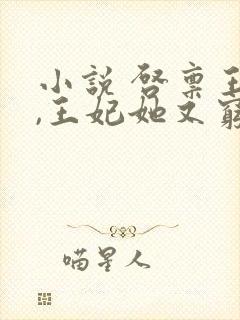 小說 啓稟王
,王妃她又窮
喵星人